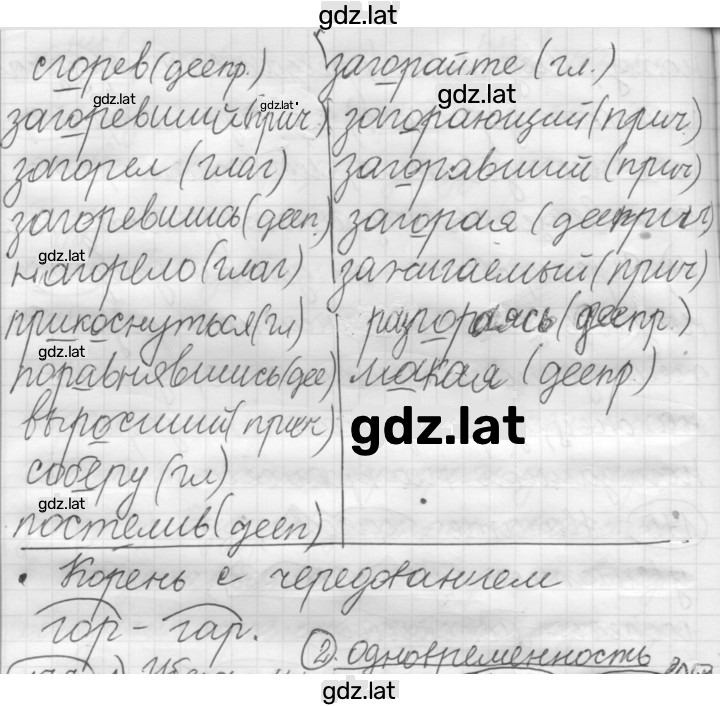 gdz.lat
сгорев (деепр.)
загоревший (прич)
загорел (глаг)
загоревшись (дееп.)
нагорело (глаг)
прикоснуться (гл)
поравнявшись (дее)
выросший (прич)
соберу (гл)
постелив (дееп)
загорайте (гл.)
загорающий (прич)
загоравший (прич)
загорая (дееприч)
зажигаемый (прич)
разгораясь (деепр.)
макая (деепр.)
gdz.lat
gdz.lat
gdz.lat
gdz.lat
gdz.lat
gdz.lat
gdz.lat
gdz.lat
• Корень с чередованием
гор – гар.
2. одновременность
gdz.lat